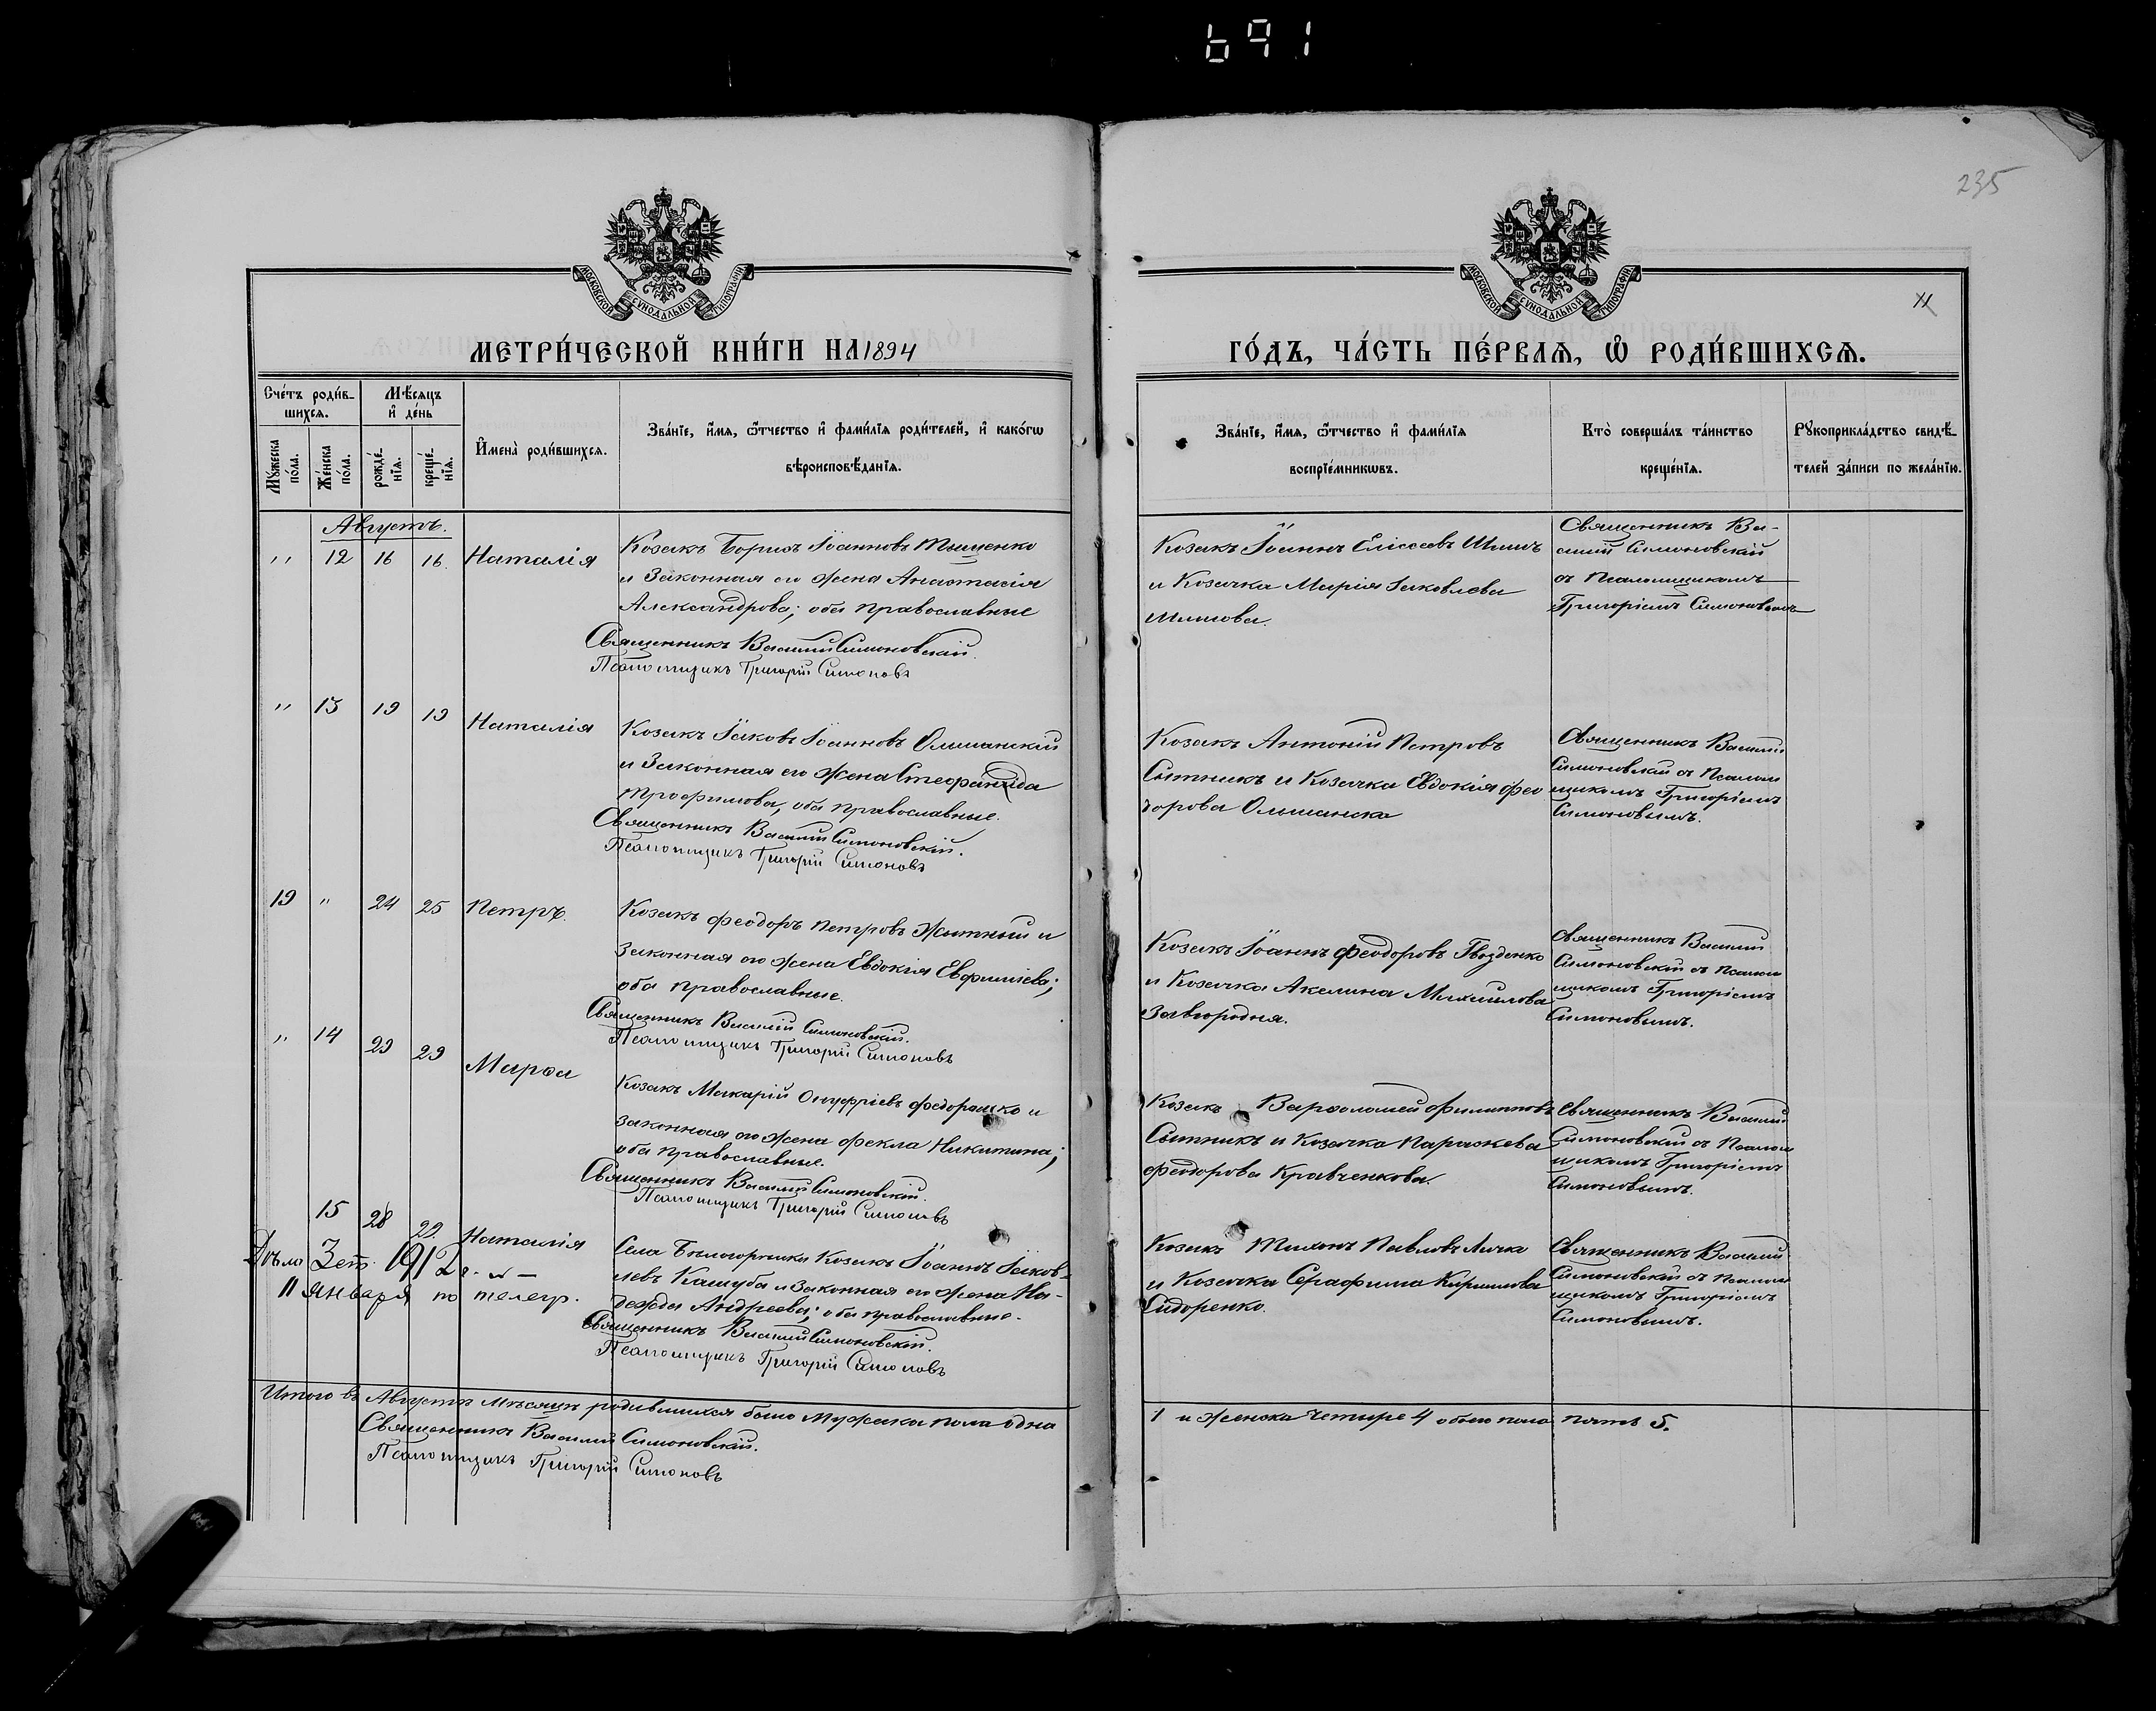 691
235
МОСКОВСКОЙ СѴНОДАЛЬНОЙ ТИПОГРАФІИ
МОСКОВСКОЙ СѴНОДАЛЬНОЙ ТИПОГРАФІИ
11
МЕТРИ́ЧЕСКОЙ КНИ́ГИ НА 1894
ГО́ДЪ, ЧА́СТЬ ПЕ́РВАЯ, Ѡ҆ РОДИ́ВШИХСѦ.
Сче́тъ роди́в-
шихсѧ.
Мꙋ́жеска
по́ла.
Же́нска
по́ла.
Мѣ́сяцъ
и҆ де́нь
рожде́-
нїѧ.
креще́-
нїѧ.
И҆мена̀ роди́вшихсѧ.
Зва́нїе, и҆́мѧ, ѻ҆́тчество и҆ фами́лїѧ роди́телей, и҆ како́гѡ
вѣроисповѣ́данїѧ.
Зва́нїе, и҆́мѧ, ѻ҆́тчество и҆ фами́лїѧ
воспрїе́мникѡвъ.
Кто̀ соверша́лъ та́инство
креще́нїѧ.
Рꙋкоприкла́дство свидѣ́-
телей за́писи по жела́нїю.
Августъ.
" 12 16 16 Наталія
Козакъ Борисъ Іоанновъ Тыщенко
и законная его жена Анастасія
Александрова; оба православные
Священникъ Василій Симоновскій.
Псаломщикъ Григорій Симоновъ
Козакъ Іоаннъ Елісеевъ Шишъ
и Козачка Марія Іаковлева
Священникъ Ва-
силій Симоновскій
съ Псаломщикомъ
Григоріемъ Симоновымъ
" 13 19 19 Наталія
Козакъ Іаковъ Іоанновъ Ольшанскій
и законная его жена Стефанида
Трофимова, оба православные.
Священникъ Василій Симоновскій.
Псаломщикъ Григорій Симоновъ
Козакъ Антоній Петровъ
Сытникъ и Козачка Евдокія Фео
дорова Ольшанска
Священникъ Василій
Симоновскій съ Псалом
щикомъ Григоріемъ
Симоновымъ.
19 " 24 25 Петръ.
Козакъ Феодоръ Петровъ Жытный и
законная его жена Евдокія Евфиміева;
оба православные.
Священникъ Василій Симоновскій.
Псаломщикъ Григорій Симоновъ
Козакъ Іоаннъ Феодоровъ Гвозденко
и Козачка Акелина Михаилова
Завгородня.
Священникъ Василій
Симоновскій съ Псалом
щикомъ Григоріемъ
Симоновымъ.
" 14 29 29 Марѳа
Козакъ Макарій Онуфріевъ Федорашко и
законная его жена Фекла Никитина;
оба православные.
Священникъ Василій Симоновскій.
Псаломщикъ Григорій Симоновъ
Козакъ Варѳоломей Филипповъ
Сытникъ и Козачка Параскева
Феодорова Кравченкова.
Священникъ Василій
Симоновскій съ Псалом
щикомъ Григоріемъ
Симоновымъ.
15 28 29 Наталія
Села Бѣлогорѣлки Козакъ Іоаннъ Іаков-
левъ Кашуба и законная его жена На-
дежда Андреева; оба православные.
Священникъ Василій Симоновскій.
Псаломщикъ Григорій Симоновъ
Козакъ Тихонъ Павловъ Личка
и Козачка Серафима Кириллова
Сидоренко.
Священникъ Василій
Симоновскій съ Псалом
щикомъ Григоріемъ
Симоновымъ.
Дѣло 1912 г.
11 января по телегр.
Итого въ Августѣ мѣсяцѣ родившихся было мужска пола одна
1 и женска четыре 4 обоего пола пять 5.
Священникъ Василій Симоновскій.
Псаломщикъ Григорій Симоновъ